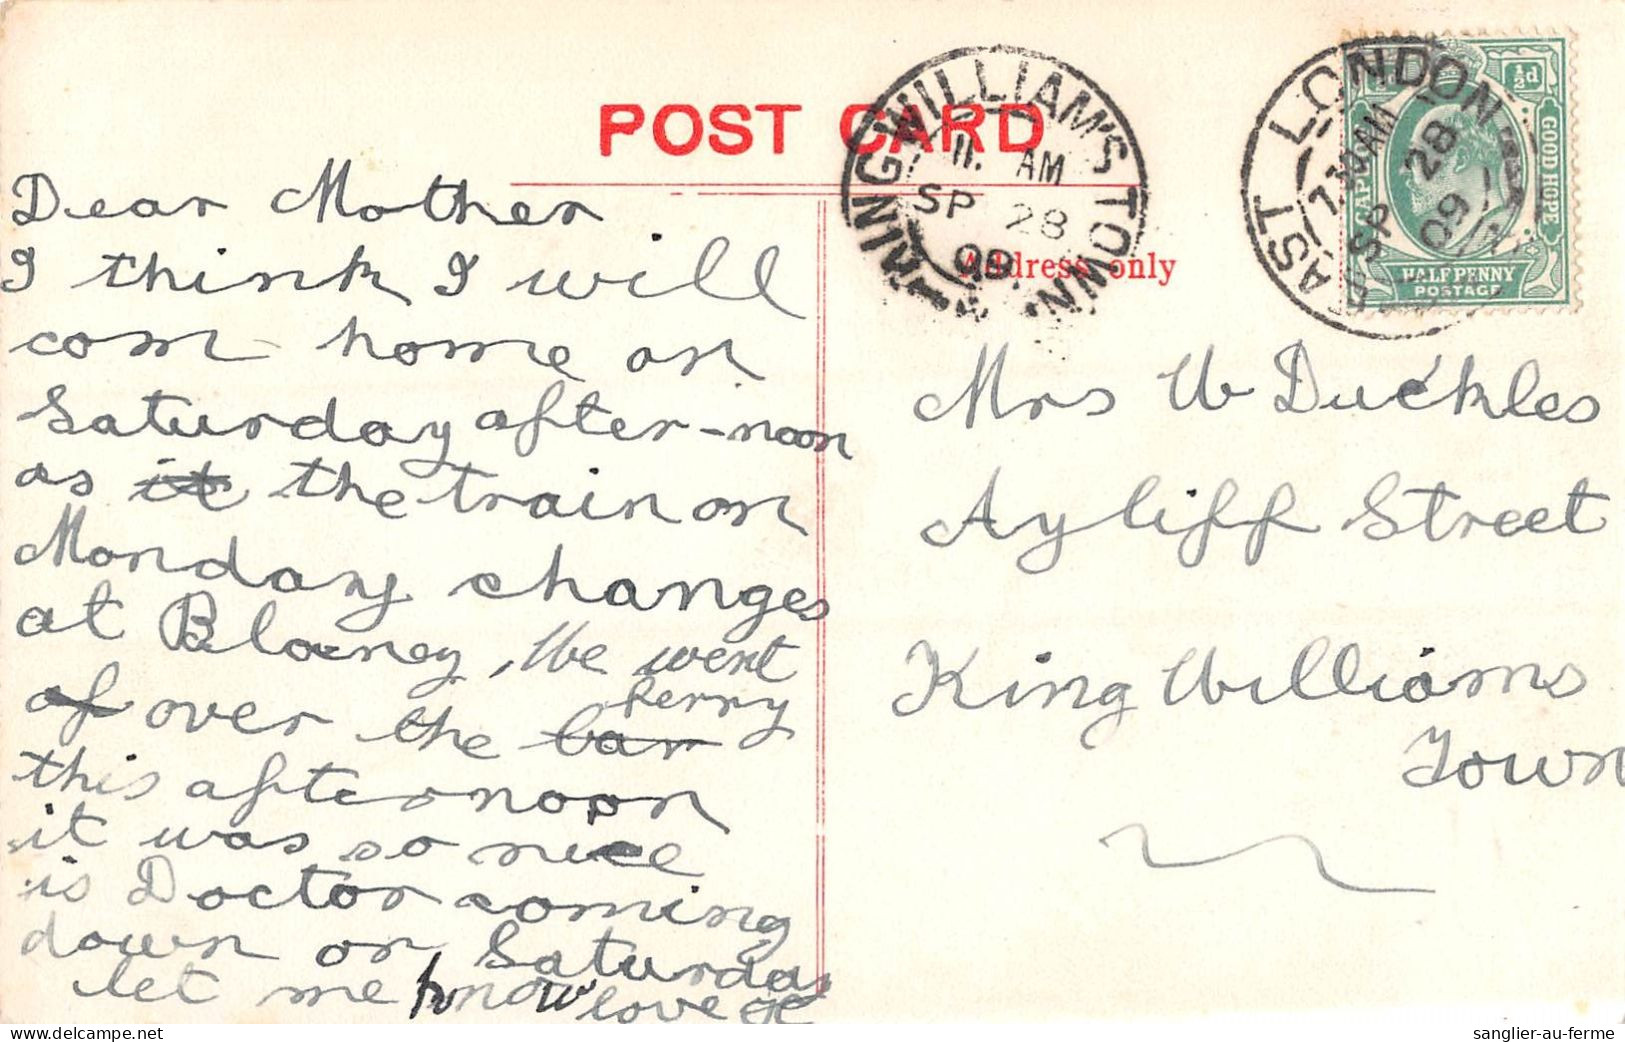 POST CARD
Address only
KING WILLIAM'S TOWN
11. AM
SP 28
09
EAST LONDON
7 30 AM
SP 28
09
½d
GOOD HOPE
CAPE
HALFPENNY
POSTAGE
Dear Mother
I think I will
com home on
Saturday after-noon
as it the train on
Monday changes
at Blaney, We went
of over the bar ferry
this afternoon
it was so nice
is Doctor coming
down on Saturday
let me know love
Mrs W Duckles
Ayliff Street
King Williams
Town
sanglier-au-ferme